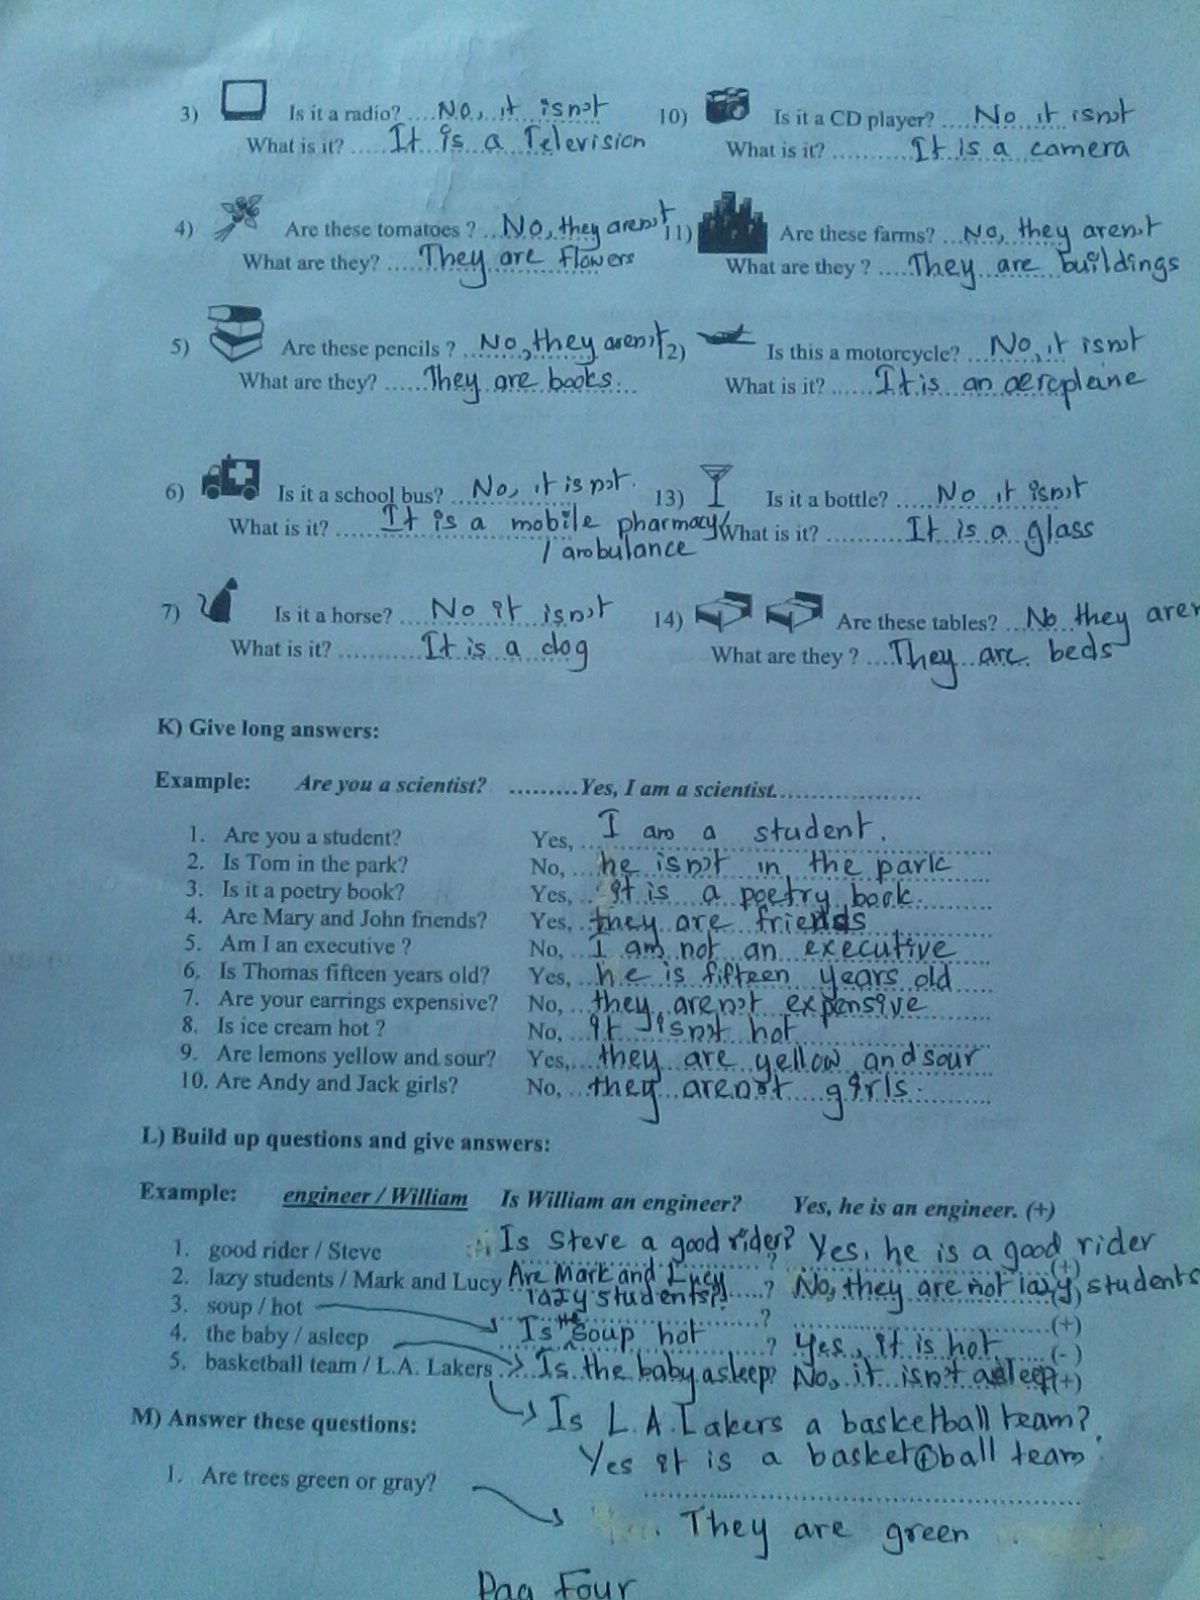 3) Is it a radio? ....No, it isn't
What is it? .....It is a Television
4) Are these tomatoes ? ..No, they aren't
What are they? ....They are flowers
5) Are these pencils ? ..No, they aren't
What are they? ......They are books.
6) Is it a school bus? ..No, it is not.
What is it? ......It is a mobile pharmacy/
/ ambulance
7) Is it a horse? ...No it isn't
What is it? .........It is a dog
10) Is it a CD player? ....No it isn't
What is it? .........It is a camera
11) Are these farms? ...No, they aren't
What are they ? ....They are buildings
12) Is this a motorcycle? ...No, it isn't
What is it? ......It is an aeroplane
13) Is it a bottle? .....No it isn't
What is it? .........It is a glass
14) Are these tables? ...No they aren
What are they ? ....They are beds
K) Give long answers:
Example: Are you a scientist? .........Yes, I am a scientist.....................
1. Are you a student? Yes, ...I am a student.
2. Is Tom in the park? No, ...he isn't in the park
3. Is it a poetry book? Yes, ..it is a poetry book.
4. Are Mary and John friends? Yes, ..they are friends
5. Am I an executive ? No, ...I am not an executive
6. Is Thomas fifteen years old? Yes, ...he is fifteen years old
7. Are your earrings expensive? No, ...they aren't expensive
8. Is ice cream hot ? No, ...it isn't hot
9. Are lemons yellow and sour? Yes, ...they are yellow and sour
10. Are Andy and Jack girls? No, ...they aren't girls.
L) Build up questions and give answers:
Example: engineer / William Is William an engineer? Yes, he is an engineer. (+)
1. good rider / Steve Is Steve a good rider? ? Yes, he is a good rider (+)
2. lazy students / Mark and Lucy Are Mark and Lucy lazy students? ? No, they are not lazy students (-)
3. soup / hot ? (+)
4. the baby / asleep Is the soup hot ? Yes, it is hot (-)
5. basketball team / L.A. Lakers Is the baby asleep? No, it isn't asleep (+)
Is L.A. Lakers a basketball team?
Yes it is a basketball team.
M) Answer these questions:
1. Are trees green or gray?
They are green
Pag Four